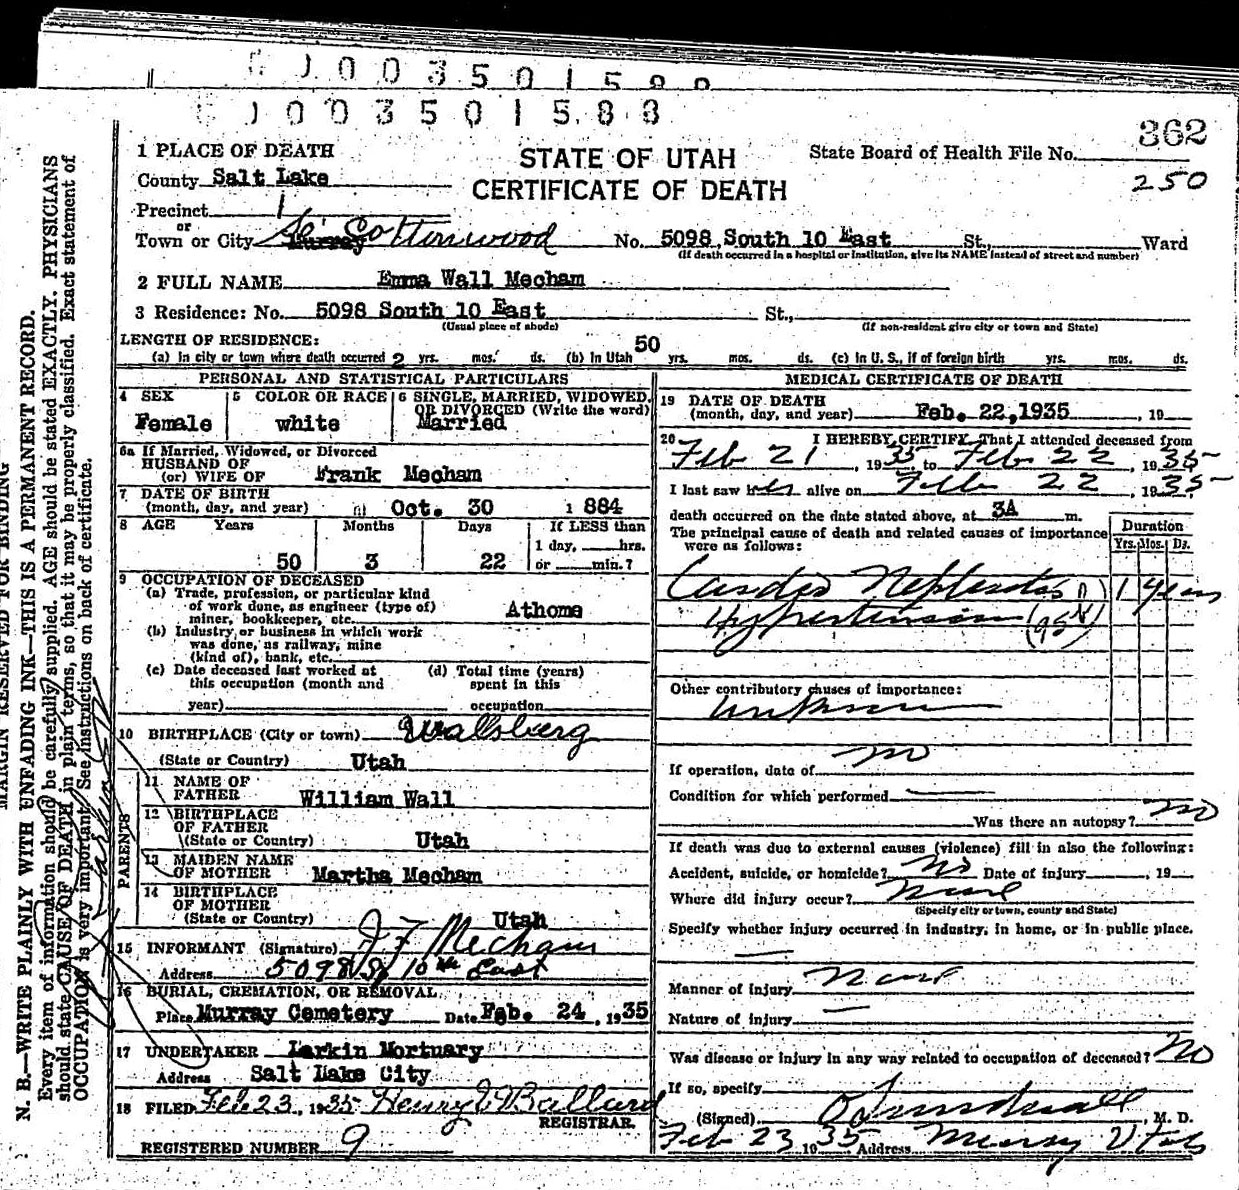 0 0 3 5 0 1 5 8 8
0 0 3 5 0 1 5 8 8
362
1 PLACE OF DEATH
STATE OF UTAH
State Board of Health File No.
County Salt Lake
CERTIFICATE OF DEATH
250
Precinct 1
or
Town or City Murray So Cottonwood No. 5098 South 10 East St., Ward
(If death occurred in a hospital or institution, give its NAME instead of street and number)
2 FULL NAME Emma Wall Mecham
3 Residence: No. 5098 South 10 East St.,
(Usual place of abode) (If non-resident give city or town and State)
LENGTH OF RESIDENCE:
(a) In city or town where death occurred 2 yrs. mos. ds. (b) In Utah 50 yrs. mos. ds. (c) In U. S., if of foreign birth yrs. mos. ds.
PERSONAL AND STATISTICAL PARTICULARS
4 SEX
Female
5 COLOR OR RACE
white
6 SINGLE, MARRIED, WIDOWED,
OR DIVORCED (Write the word)
Married
6a If Married, Widowed, or Divorced
HUSBAND OF
(or) WIFE OF Frank Mecham
7 DATE OF BIRTH
(month, day, and year) Oct. 30 1884
8 AGE Years Months Days If LESS than
1 day, hrs.
50 3 22 or min.?
9 OCCUPATION OF DECEASED
(a) Trade, profession, or particular kind
of work done, as engineer (type of)
miner, bookkeeper, etc. Athome
(b) Industry or business in which work
was done, as railway, mine
(kind of), bank, etc.
(c) Date deceased last worked at
this occupation (month and
year)
(d) Total time (years)
spent in this
occupation
10 BIRTHPLACE (City or town) Wallsberg
(State or Country) Utah
PARENTS
11 NAME OF
FATHER William Wall
12 BIRTHPLACE
OF FATHER
(State or Country) Utah
13 MAIDEN NAME
OF MOTHER Martha Mecham
14 BIRTHPLACE
OF MOTHER
(State or Country) Utah
15 INFORMANT (Signature) J F Mecham
Address 5098 So 10th East
16 BURIAL, CREMATION, OR REMOVAL
Place Murray Cemetery Date Feb. 24, 1935
17 UNDERTAKER Larkin Mortuary
Address Salt Lake City
18 FILED Feb 23, 1935 Henry W Ballard
REGISTRAR.
REGISTERED NUMBER 9
MEDICAL CERTIFICATE OF DEATH
19 DATE OF DEATH
(month, day, and year) Feb. 22, 1935, 19
20 I HEREBY CERTIFY, That I attended deceased from
Feb 21, 1935 to Feb 22, 1935
I last saw her alive on Feb 22, 1935
death occurred on the date stated above, at 3A m.
The principal cause of death and related causes of importance
were as follows:
Duration
Yrs. Mos. Ds.
Cardio Nephrosis 1 years
Hypertension (95)
Other contributory causes of importance:
Unknown
If operation, date of no
Condition for which performed
Was there an autopsy? no
If death was due to external causes (violence) fill in also the following:
Accident, suicide, or homicide? No Date of injury, 19
Where did injury occur? None
(Specify city or town, county and State)
Specify whether injury occurred in industry, in home, or in public place.
Manner of injury None
Nature of injury
Was disease or injury in any way related to occupation of deceased? No
If so, specify
(Signed) M. D.
Feb 23 1935 Address Murray Utah
MARGIN RESERVED FOR BINDING
N. B.—WRITE PLAINLY WITH UNFADING INK—THIS IS A PERMANENT RECORD.
Every item of information should be carefully supplied. AGE should be stated EXACTLY. PHYSICIANS
should state CAUSE OF DEATH in plain terms, so that it may be properly classified. Exact statement of
OCCUPATION is very important. See instructions on back of certificate.